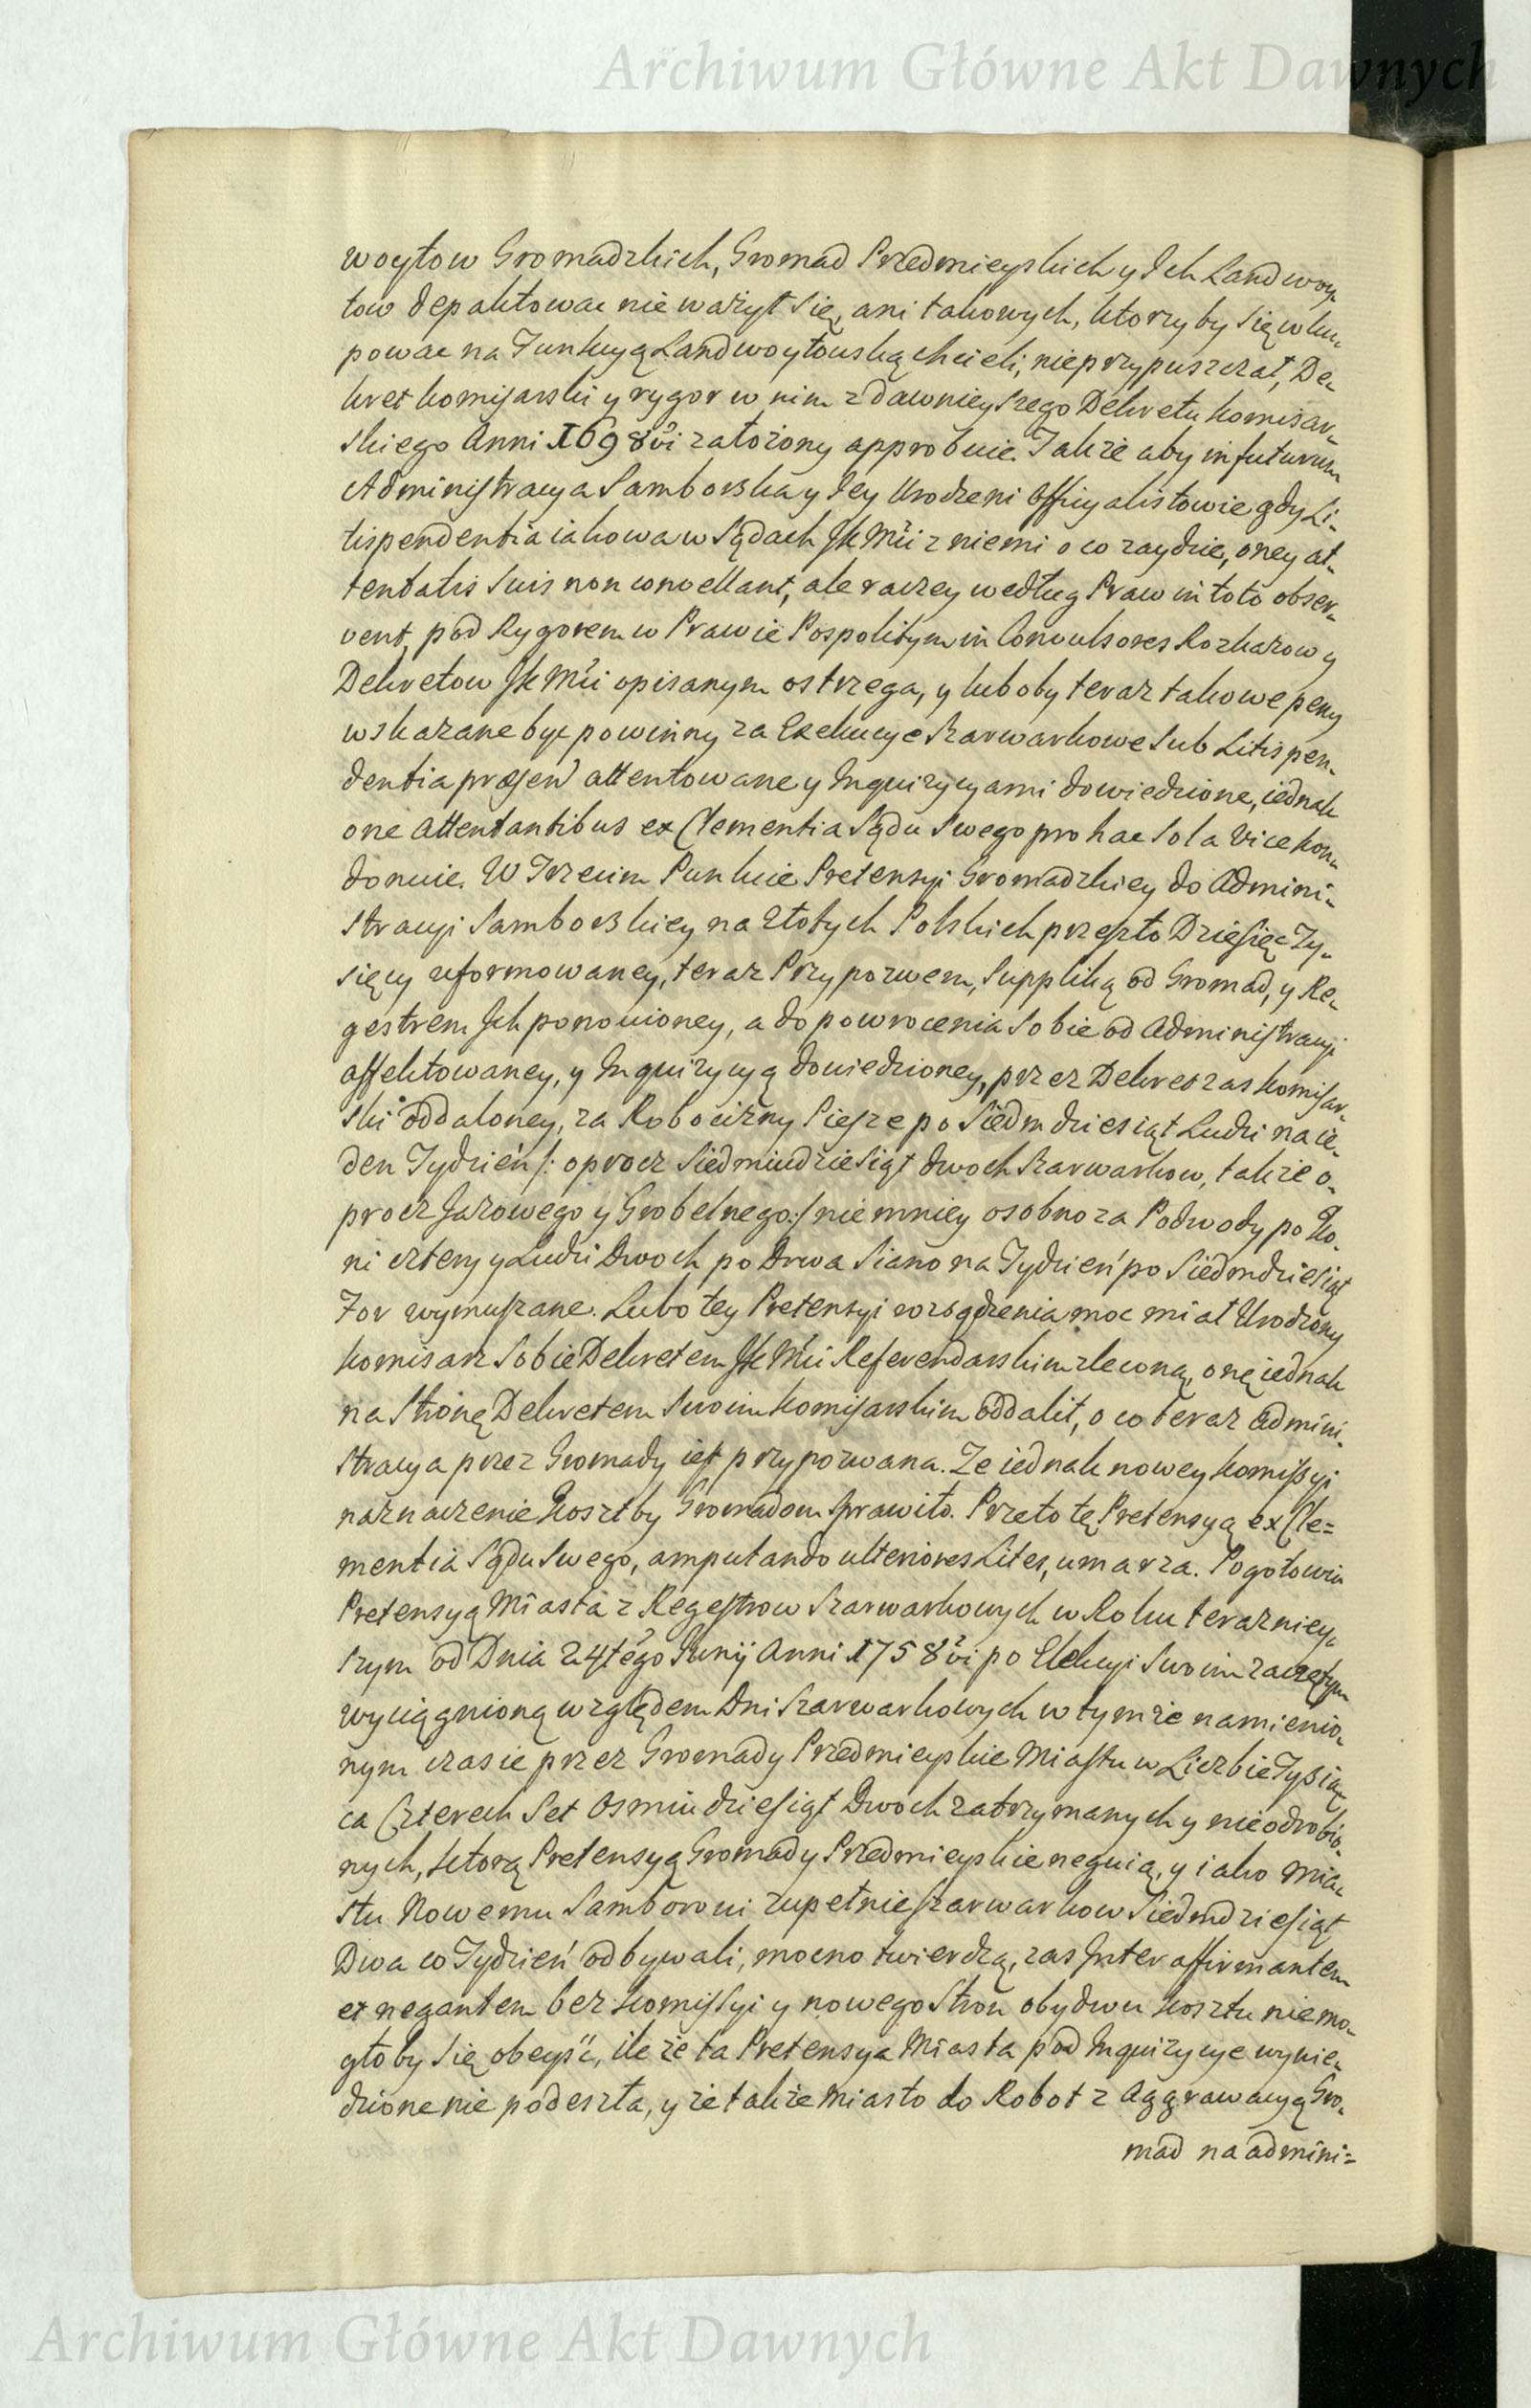 Archiwum Główne Akt Dawnych
woytow Gromadzkich, Gromad Przedmieyskich y Ich Landwoy-
tow depaktowac nie ważył się, ani takowych, ktorzyby się wku-
powac na Funkcyą Landwoytowską chcieli, nieprzypuszczał, De-
kret komisarski y rygor w nim z dawnieyszego Dekretu komisar-
skiego Anni 1698vi założony approbuie. Takze aby in futurum
Administracya Samborska y Jey Urodzeni Officyalistowie gdy Li-
tispendentia iakowa w Sądach JkMci z niemi o co zaydzie, oney at-
tentatis suis non convellant, ale raczey według Praw in toto obser-
vent, pod Rygorem w Prawie Pospolitym in Convulsores Rozkazow y
Dekretow JkMci opisanym ostrzega, y luboby teraz takowe peny
wskazane być powinny za Exekucye Szarwarkowe sub Litispen-
dentia præsen attentowane y Inquizycyami dowiedzione, iednak
one Attentantibus ex Clementia Sądu Swego pro hac sola vice kon-
donuie. W Trzecim Punkcie Pretensyi Gromadzkiey do Admini-
stracyi Samborskiey na Złotych Polskich przeszło Dziesięc Ty-
sięcy uformowaney, teraz Przypozwem, Suppliką od Gromad, y Re-
gestrem Ich ponowioney, a do powrocenia sobie od Administracyi
affektowaney, y Inquizycyą dowiedzioney, przez Dekret zas komisar-
ski oddaloney, za Robocizny Piesze po Siedmdziesiąt Ludzi na ie-
den Tydzień /: oprocz Siedmiudziesiąt dwoch Szarwarkow, takze o-
procz Jazowego y Grobelnego :/ niemniey osobno za Podwody po Ko-
ni cztery y Ludzi Dwoch po Drwa Siano na Tydzień po Siedmdziesiąt
For wymuszane. Lubo tey Pretensyi rozsądzenia moc miał Urodzony
komisarz sobie Dekretem JkMci Referendarskim zleconą, onę iednak
na Stronę Dekretem Swoim komisarskim oddalił, o co teraz Admini-
stracya przez Gromady iest przypozwana. Ze iednak nowey komissyi
naznaczenie kosztby Gromadom sprawiło. Przeto tę Pretensyą ex Cle=
mentia Sądu Swego, amputando ulteriores Lites, umarza. Pogotowiu
Pretensyą Miasta z Regestrow Szarwarkowych w Roku teraznіey-
szym od Dnia 24tego Junij Anni 1758vi po Elekcyi Swoim zaczętym
wyciągnioną względem Dni Szarwarkowych w tymze namienio-
nym czasie przez Gromady Przedmieyskie Miastu w Liczbie Tysią-
ca Czterech Set Osmiudziesiąt Dwoch zatrzymanych y nieodrobio-
nych, ktorą Pretensyą Gromady Przedmieyskie neguią, y iako Mia-
stu Nowemu Samborowi zupełnie szarwarkow Siedmdziesiąt
Dwa co Tydzień odbywali, mocno twierdzą, zas Inter affirmantem
et negantem bez komissyi y nowego Stron obydwu kosztu niemo-
głoby się obeyść, ile że ta Pretensya Miasta pod Inquizycye wywie-
dzione nie podeszła, y że także Miasto do Robot z Aggrawacyą Gro-
mad na admini=
Archiwum Główne Akt Dawnych